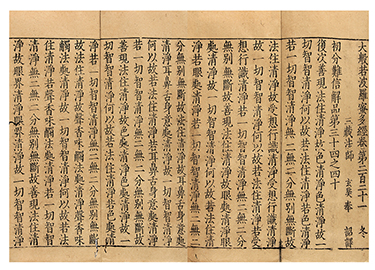 大般若波羅蜜多經卷第二百二十一 冬
三藏法師 玄奘奉 詔譯
初分難信解品第三十四之四十
復次善現法住清淨故色清淨色清淨故一
切智智清淨何以故若法住清淨若色清淨
若一切智智清淨無二無二分無別無斷故
法住清淨故受想行識清淨受想行識清淨
故一切智智清淨何以故若法住清淨若受
想行識清淨若一切智智清淨無二無二分
無別無斷故善現法住清淨故眼處清淨眼
處清淨故一切智智清淨何以故若法住清
淨若眼處清淨若一切智智清淨無二無二
分無別無斷故法住清淨故耳鼻舌身意處
清淨耳鼻舌身意處清淨故一切智智清淨
何以故若法住清淨若耳鼻舌身意處清淨
若一切智智清淨無二無二分無別無斷故
善現法住清淨故色處清淨色處清淨故一
切智智清淨何以故若法住清淨若色處清
淨若一切智智清淨無二無二分無別無斷
故法住清淨故聲香味觸法處清淨聲香味
觸法處清淨故一切智智清淨何以故若法
住清淨若聲香味觸法處清淨若一切智智
清淨無二無二分無別無斷故善現法住清
淨故眼界清淨眼界清淨故一切智智清淨